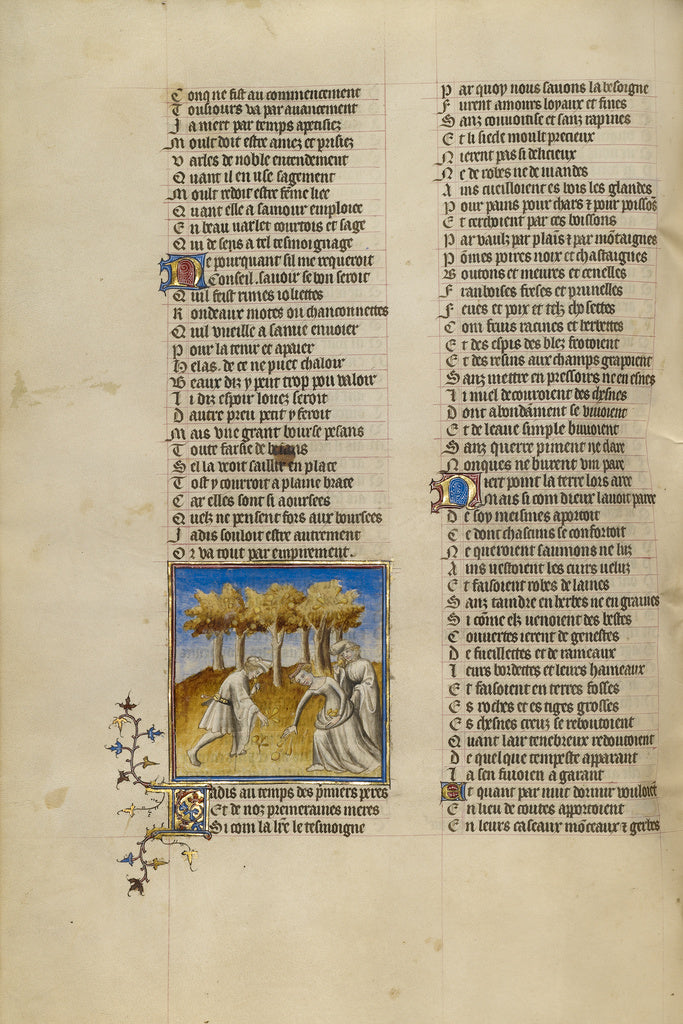 Conq ne fist au commencement
Tousiours va par auancement
Ja niert par temps apetisiez
Moult doit estre amez et prisiez
Varles de noble entendement
Quant il en use sagement
Moult redoit estre feme liee
Quant elle a samour emploiee
En beau varlet courtois et sage
Qui de sens a tel tesmoignage
Ne pourquant sil me requeroit
Conseil. sauoir se bon seroit
Quil feist rimes ioliettes
Rondeaux motes ou chanconnettes
Quil vueille a samie enuoier
Pour la tenir et apaier
Helas. de ce ne puet chaloir
Beaux diz y peut trop pou valoir
Li diz espoir louez seroit
Dautre preu petit y feroit
Mais vne grant bourse pesans
Toute farsie de besans
Sel la veoit saillir en place
Tost y courroit a plaine brace
Car elles sont si aoursees
Quelz ne pensent fors aux boursees
Jadis souloit estre autrement
Or va tout par empirement.
Jadis au temps des pmiers peres
Et de noz premeraines meres
Si com la lre le tesmoigne
Par quoy nous sauons la besoigne
Furent amours loyaux et fines
Sanz conuoitise et sanz rapines
Et li siecle moult precieux
Nierent pas si delicieux
Ne de robes ne de viandes
Ains cueilloient es bois les glandes
Pour pains pour chars et pour poissos
Et cerchoient par ces boissons
Par vaulz par plais et par motaignes
Pomes poires noix et chastaignes
Boutons et meures et cenelles
Framboises freses et prunelles
Feues et poix et telz chosettes
Com fruis racines et herbettes
Et des espis des blez frotoient
Et des resins aux champs grapoient
Sanz mettre en pressoirs ne en esnes
Li miel decouroient des chesnes
Dont abondament se viuoient
Et de leaue simple buuoient
Sanz querre piment ne clare
Nonques ne burent vin pare
Niert point la terre lors aree
Mais si com dieux lauoit paree
De soy meismes aportoit
Ce dont chascuns se confortoit
Ne queroient saumons ne luz
Ains vestoient les cuirs veluz
Et faisoient robes de laines
Sanz taindre en herbes ne en graines
Si come elz venoient des bestes
Couuertes ierent de genestes
De fueillettes et de rameaux
Leurs bordettes et leurs hameaux
Et faisoient en terres fosses
Es roches et es tiges grosses
Es chesnes creuz se reboutoient
Quant lair tenebreux redoutoient
De quelque tempeste apparant
La sen fuioien a garant
Et quant par nuit dormir vouloiet
En lieu de coutes apportoient
En leurs caseaux moceaux et gerbes